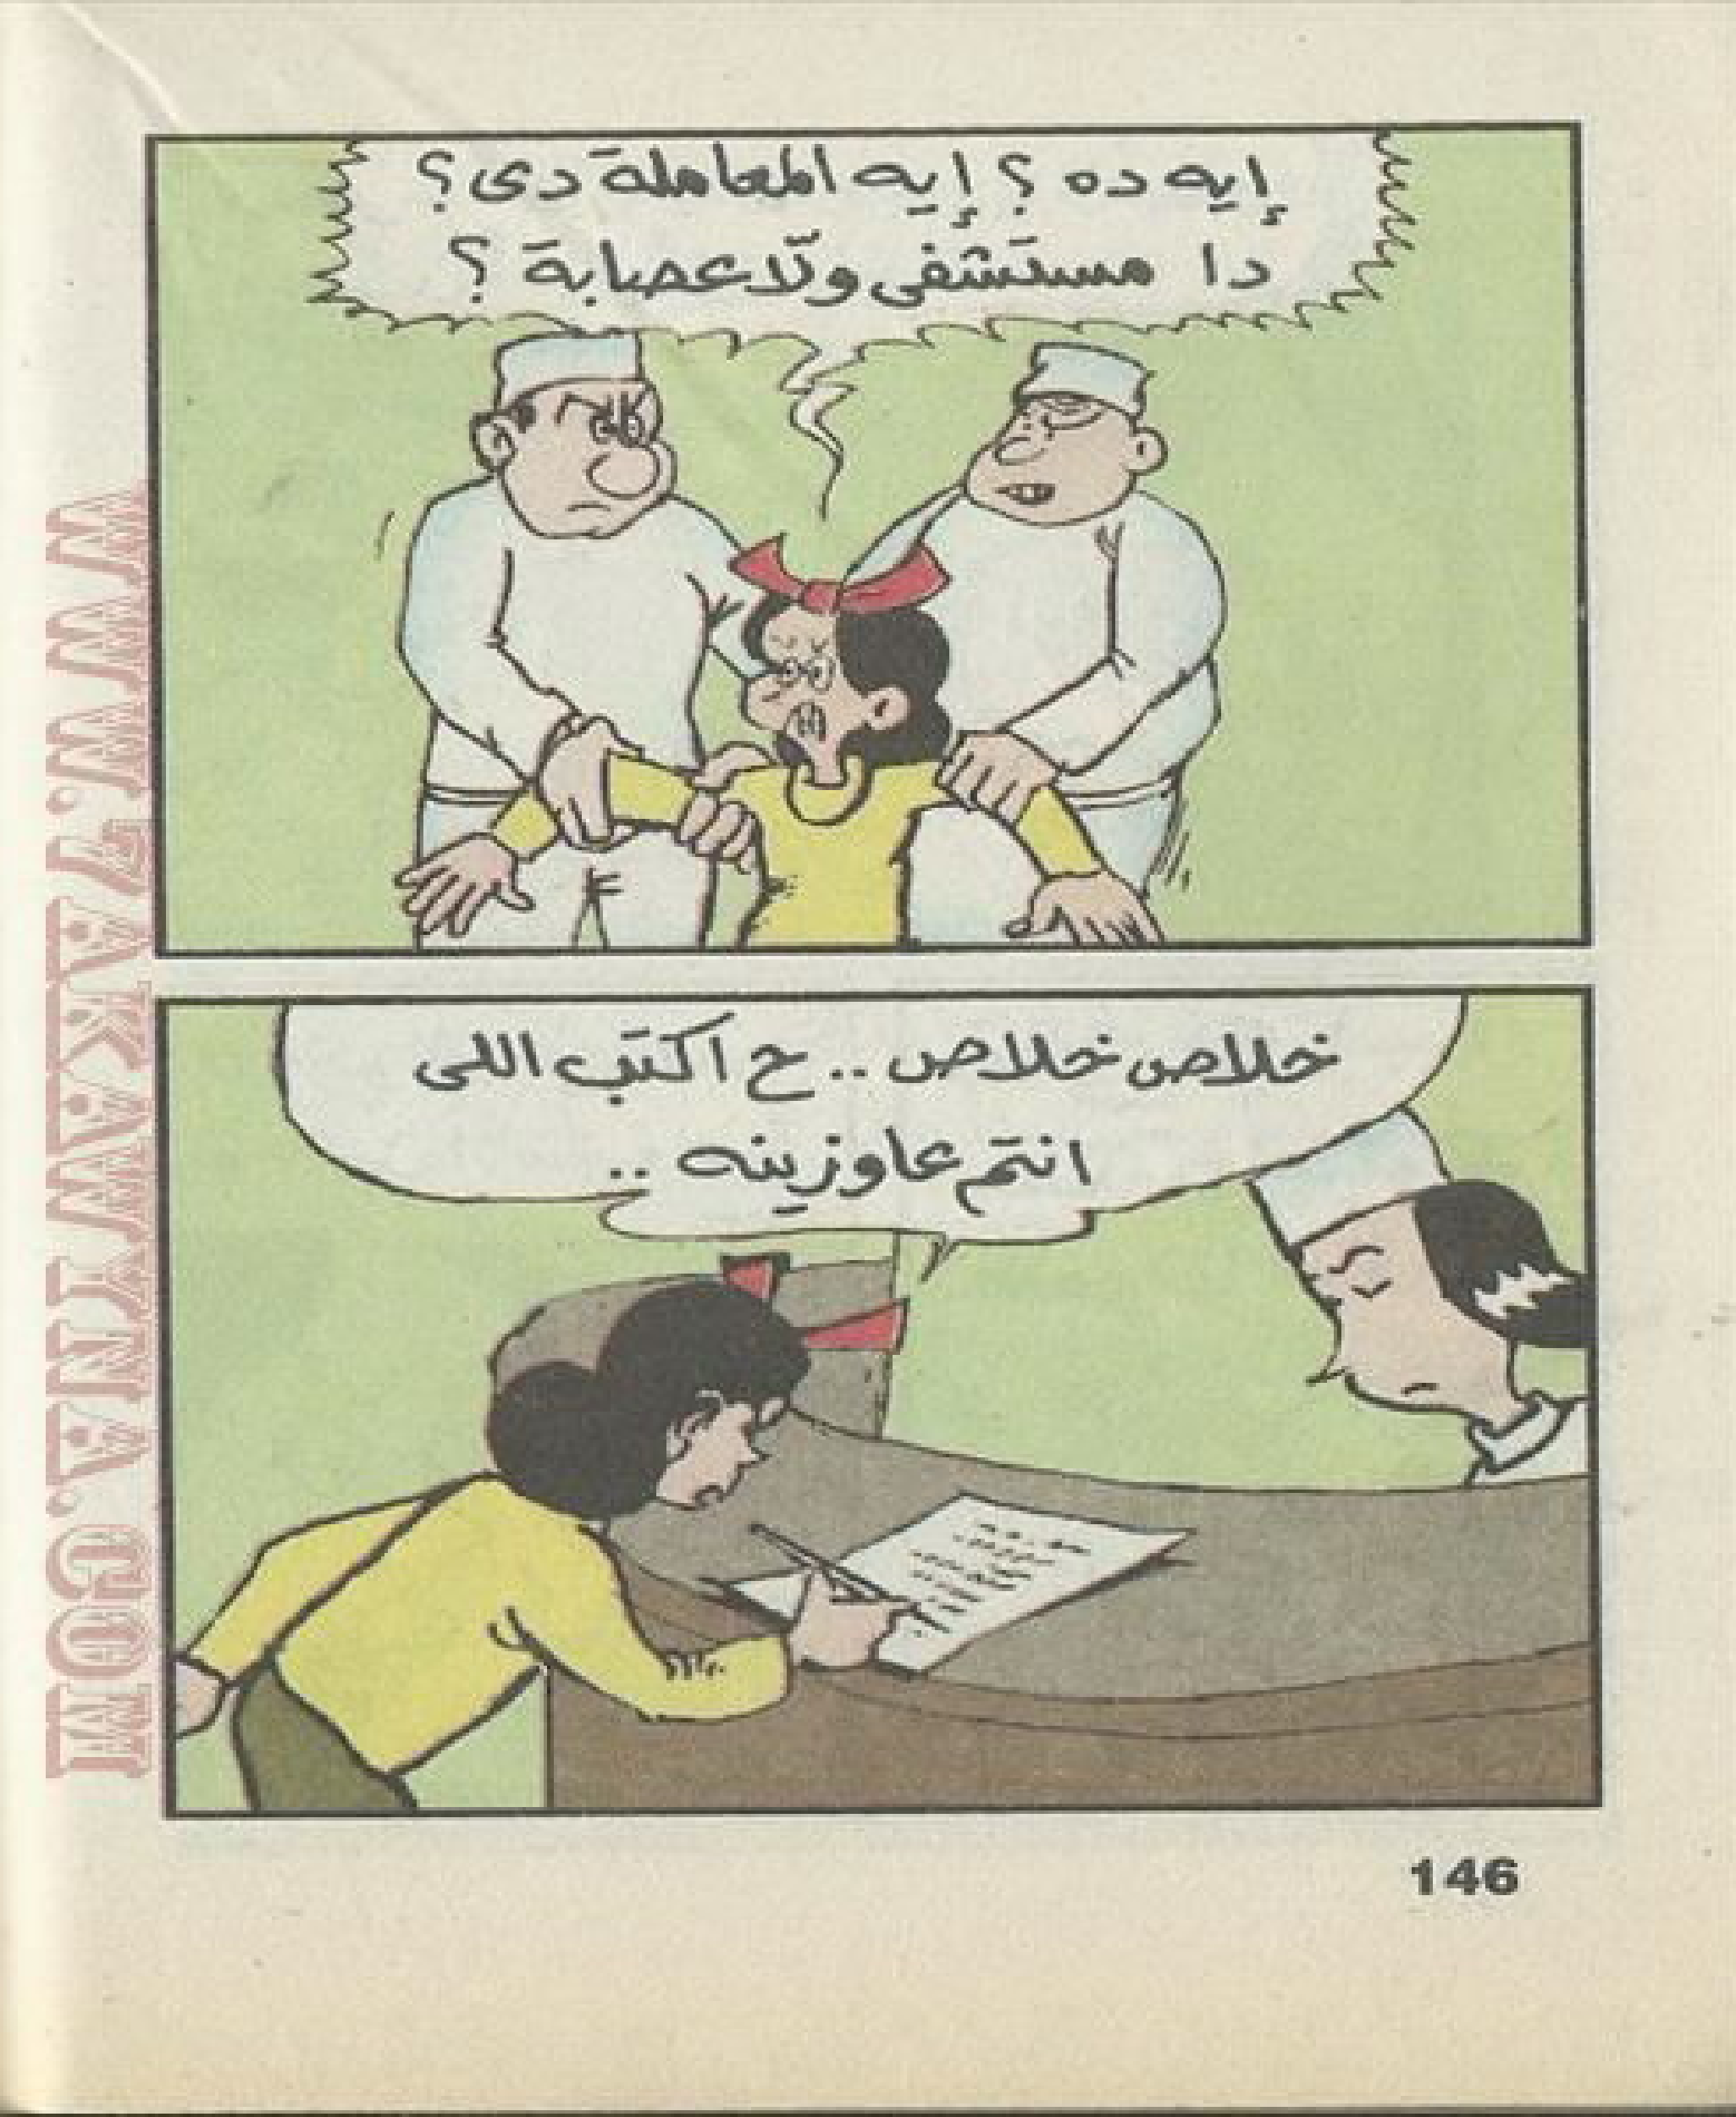 إيه ده ؟ إيه المعاملة دى ؟
دا مستشفى ولّا عصابة ؟
خلاص خلاص .. ح اكتب اللى
انتم عاوزينه ..
146
WWW.7AKAWITNA.COM